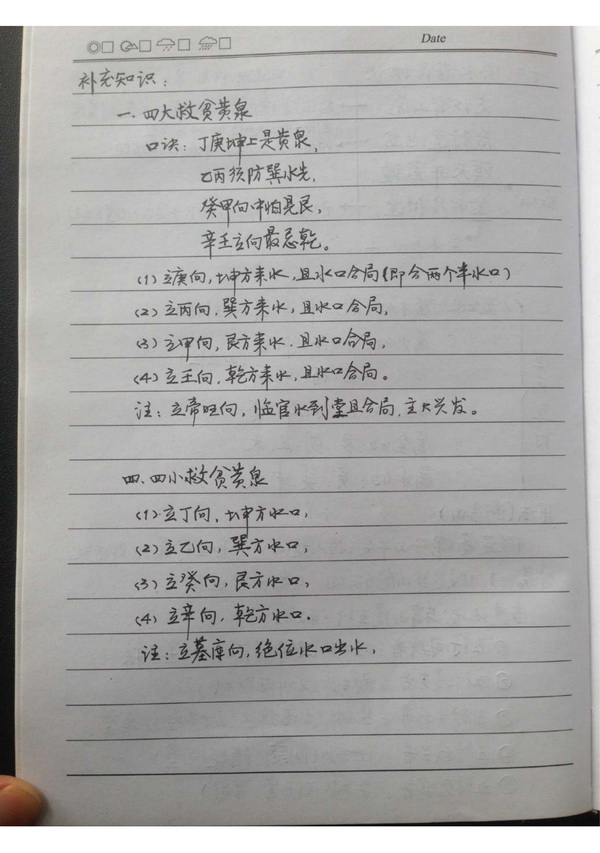 Date
补充知识：
一.四大救贫黄泉
口诀：丁庚坤上是黄泉，
乙丙须防巽水先，
癸甲向中怕见艮，
辛壬立向最忌乾。
(1)立庚向，坤方来水，且水口合局(即合两个半水口)
(2)立丙向，巽方来水，且水口合局，
(3)立甲向，艮方来水，且水口合局，
(4)立壬向，乾方来水，且水口合局。
注：立帝旺向，临官水到堂且合局，主大兴发。
四.四小救贫黄泉
(1)立丁向，坤方水口，
(2)立乙向，巽方水口，
(3)立癸向，艮方水口，
(4)立辛向，乾方水口.
注：立墓库向，绝位水口出水，